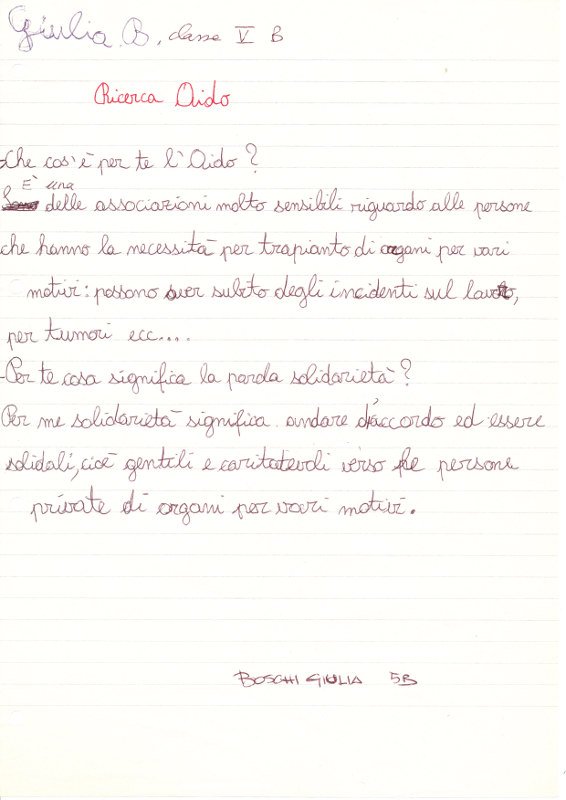 Giulia B, classe V B
Ricerca Aido
-Che cos'è per te l'Aido?
È una
delle associazioni molto sensibili riguardo alle persone
che hanno la necessità per trapianto di organi per vari
motivi: possono aver subito degli incidenti sul lavoro,
per tumori ecc....
-Per te cosa significa la parola solidarietà?
Per me solidarietà significa andare d'accordo ed essere
solidali, cioè gentili e caritatevoli verso le persone
private di organi per vari motivi.
BOSCHI GIULIA 5B